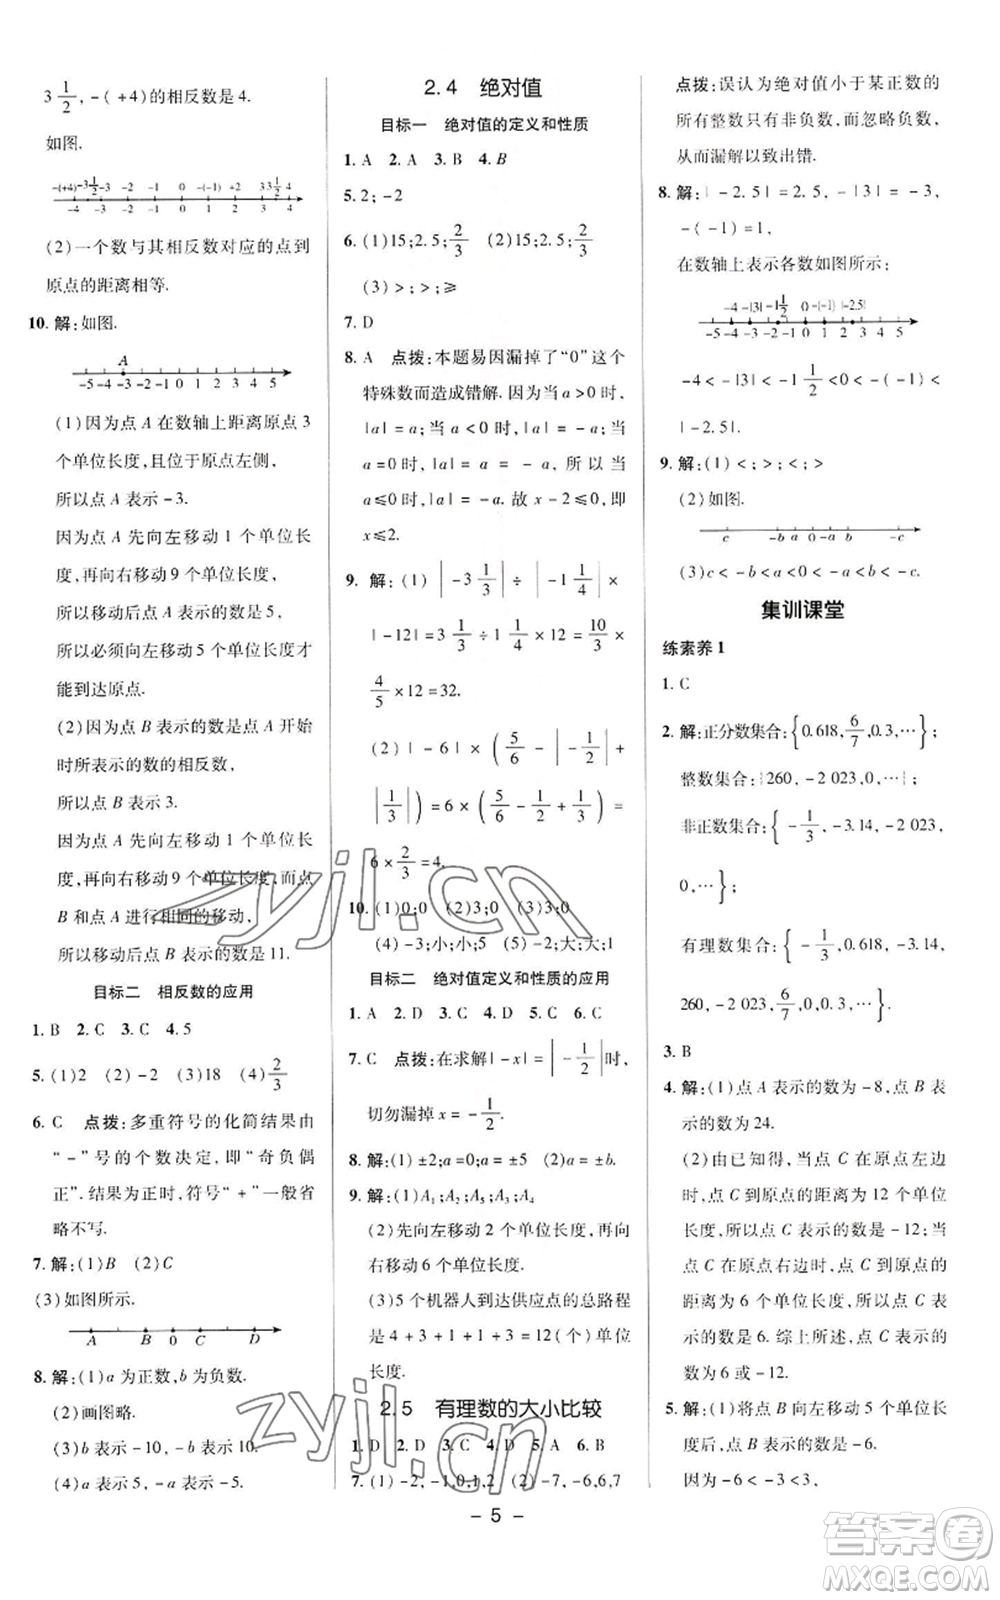 3 1/2, -(+4)的相反数是4.
如图.
-(+4) -3 1/2 -3 -2 -1 0 -(-1) +2 3 3 1/2 4
-4 -3 -2 -1 0 1 2 3 4
(2)一个数与其相反数对应的点到
原点的距离相等.
10. 解:如图.
A
-5 -4 -3 -2 -1 0 1 2 3 4 5
(1)因为点 A 在数轴上距离原点 3
个单位长度,且位于原点左侧,
所以点 A 表示 -3.
因为点 A 先向左移动 1 个单位长
度,再向右移动 9 个单位长度,
所以移动后点 A 表示的数是 5,
所以必须向左移动 5 个单位长度才
能到达原点.
(2)因为点 B 表示的数是点 A 开始
时所表示的数的相反数,
所以点 B 表示 3.
因为点 A 先向左移动 1 个单位长
度,再向右移动 9 个单位长度,而点
B 和点 A 进行相同的移动,
所以移动后点 B 表示的数是 11.
目标二 相反数的应用
1. B 2. C 3. C 4. 5
5. (1)2 (2)-2 (3)18 (4) 2/3
6. C 点拨:多重符号的化简结果由
“-”号的个数决定,即“奇负偶
正”. 结果为正时,符号“+”一般省
略不写.
7. 解:(1)B (2)C
(3)如图所示.
A B 0 C D
8. 解:(1)a 为正数,b 为负数.
(2)画图略.
(3)b 表示 -10, -b 表示 10.
(4)a 表示 5, -a 表示 -5.
2.4 绝对值
目标一 绝对值的定义和性质
1. A 2. A 3. B 4. B
5. 2; -2
6. (1)15;2.5; 2/3 (2)15;2.5; 2/3
(3) >; >; ≥
7. D
8. A 点拨:本题易因漏掉了“0”这个
特殊数而造成错解. 因为当 a>0 时,
|a| = a; 当 a < 0 时, |a| = -a; 当
a=0 时, |a| = a = -a, 所以当
a≤0 时, |a| = -a. 故 x-2≤0, 即
x≤2.
9. 解:(1) |-3 1/3| ÷ |-1 1/4| ×
|-12| = 3 1/3 ÷ 1 1/4 × 12 = 10/3 ×
4/5 × 12 = 32.
(2) |-6| × ( 5/6 - |-1/2| +
|1/3| ) = 6 × ( 5/6 - 1/2 + 1/3 ) =
6 × 2/3 = 4.
10. (1)0;0 (2)3;0 (3)3;0
(4)-3;小;小;5 (5)-2;大;大;1
目标二 绝对值定义和性质的应用
1. A 2. D 3. D 4. C 5. C 6. C
7. C 点拨:在求解|-x| = |-1/2|时,
切勿漏掉 -1/2.
8. 解:(1) ±2;a=0;a= ±5 (2)不一定.
9. 解:(1)A₁;A₂;A₃;A₄
(2)先向左移动 2 个单位长度,再向
右移动 6 个单位长度.
(3)5 个机器人到达供应点的总路程
是 4+3+1+1+3=12(个)单位
长度.
2.5 有理数的大小比较
1. D 2. D 3. C 4. D 5. A 6. B
7. (1)-2, -1,0,1,2 (2)-7, -6,6,7
点拨:误认为绝对值小于某正数的
所有整数只有非负数,而忽略负数,
从而漏解以致出错.
8. 解:|-2.5| = 2.5, -|3| = -3,
-(-1) = 1,
在数轴上表示各数如图所示:
-4 -|3| -1 1/2 0 -(-1) |-2.5|
-4 -3 -2 -1 0 1 2 3 4 5
-4 < -|3| < -1 1/2 < 0 < -(-1) <
|-2.5|.
9. 解:(1) <; >; <; >
(2)如图.
c -b a 0 -a b -c
(3)c < -b < a < 0 < -a < b < -c.
集训课堂
练素养 1
1. C
2. 解:正分数集合:{0.618, 6/7, 0.3, …};
整数集合:{260, -2 023,0, …};
非正数集合:{ -1/3, -3.14, -2 023,
0, …};
有理数集合:{ -1/3, 0.618, -3.14,
260, -2 023, 6/7, 0, 0.3, …}.
3. B
4. 解:(1)点 A 表示的数为 -8,点 B 表
示的数为 24.
(2)由已知得,当点 C 在原点左边
时,点 C 到原点的距离为 12 个单位
长度,所以点 C 表示的数是 -12;当
点 C 在原点右边时,点 C 到原点的
距离为 6 个单位长度,所以点 C 表
示的数是 6. 综上所述,点 C 表示的
数为 6 或 -12.
5. 解:(1)将点 B 向左移动 5 个单位长
度后,点 B 表示的数是 -6.
因为 -6 < -3 < 3,
- 5 -
zyjl.cn
zyjl.cn
答案卷
MXQE.COM